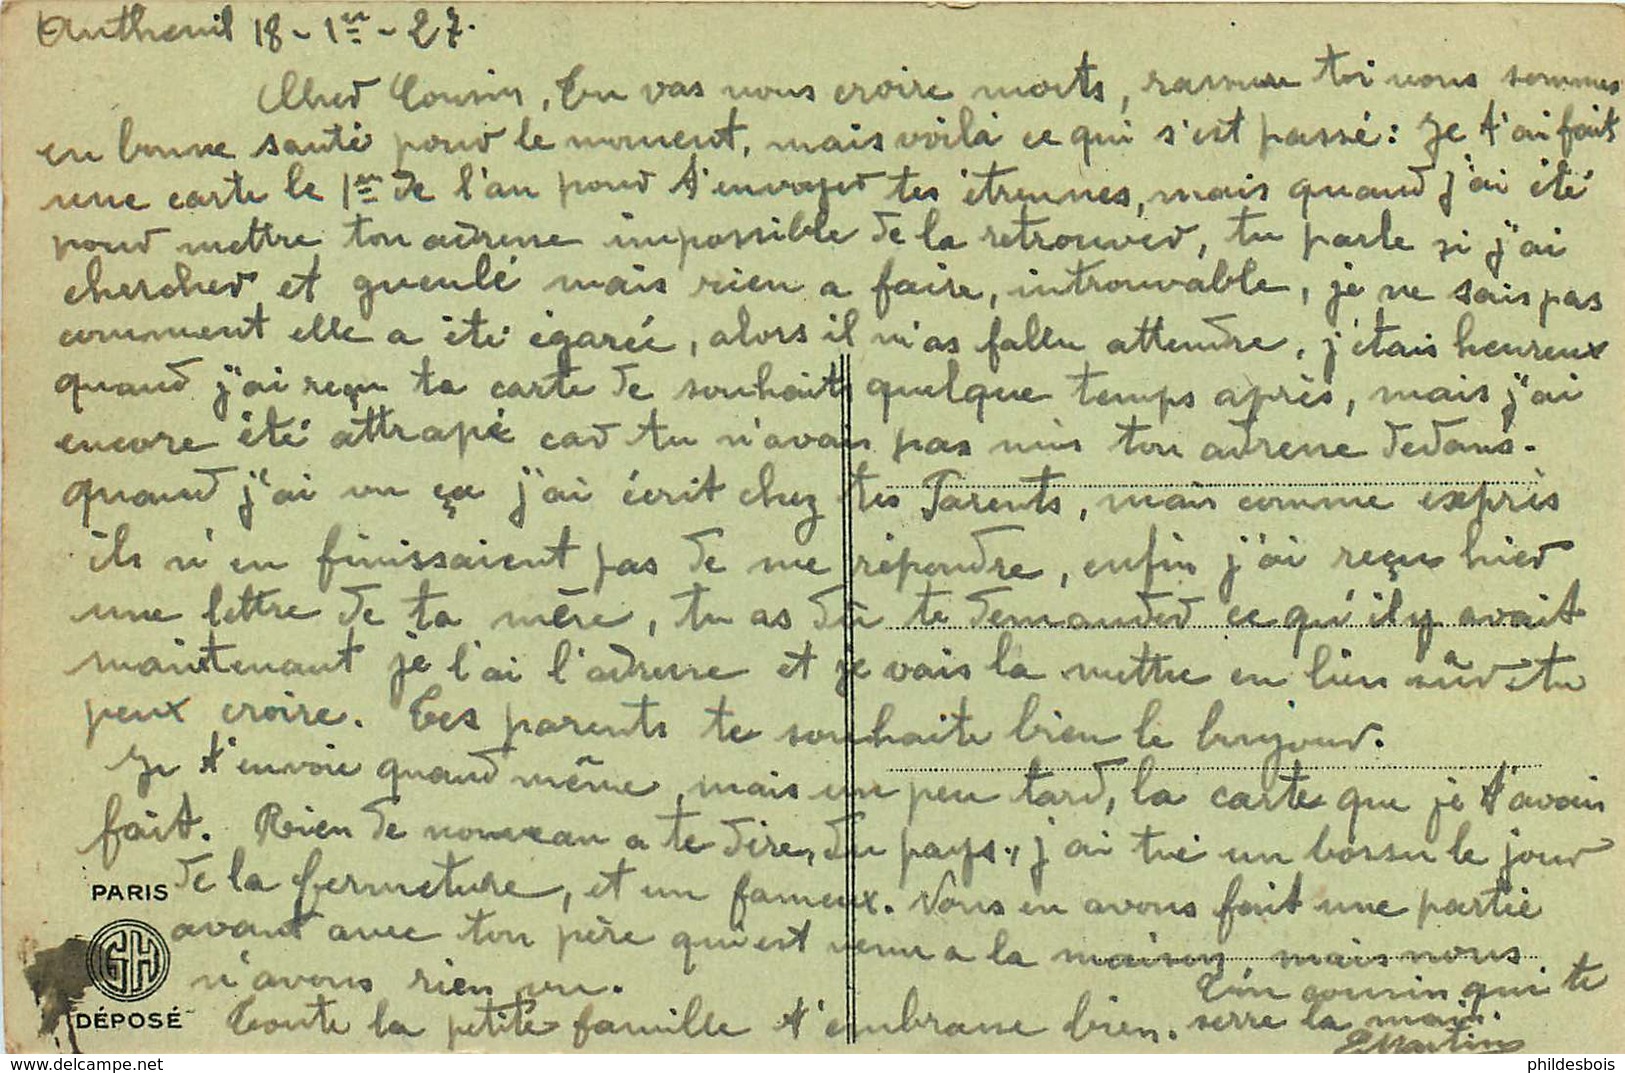 Antheuil 18 - 1er - 27.
Cher Cousin, Tu vas nous croire morts, rassure toi nous sommes
en bonne santé pour le moment, mais voilà ce qui s'est passé : Je t'ai fait
une carte le 1er de l'an pour t'envoyer tes étrennes, mais quand j'ai été
pour mettre ton adresse impossible de la retrouver, tu parle si j'ai
chercher et gueulé mais rien a faire, introuvable, je ne sais pas
comment elle a été égarée, alors il m'as fallu attendre, j'étais heureux
quand j'ai reçu ta carte de souhaits quelque temps après, mais j'ai
encore été attrapé car tu n'avais pas mis ton adresse dedans.
Quand j'ai vu ça j'ai écrit chez tes Parents, mais comme exprès
ils n'en finissaient pas de me répondre, enfin j'ai reçu hier
une lettre de ta mère, tu as dû te demander ce qu'il y avait
maintenant je l'ai l'adresse et je vais la mettre en lieu sûr tu
peux croire. Tes parents te souhaite bien le bonjour.
Je t'envoie quand même, mais un peu tard, la carte que je t'avais
fait. Rien de nouveau a te dire, du pays, j'ai tué un bossu le jour
de la fermeture, et un fameux. Nous en avons fait une partie
avant avec ton père qui est venu a la maison, mais nous
n'avons rien vu.
Toute la petite famille t'embrasse bien.
Ton cousin qui te
serre la main.
E Martin
PARIS
GH
DÉPOSÉ
phildesbois